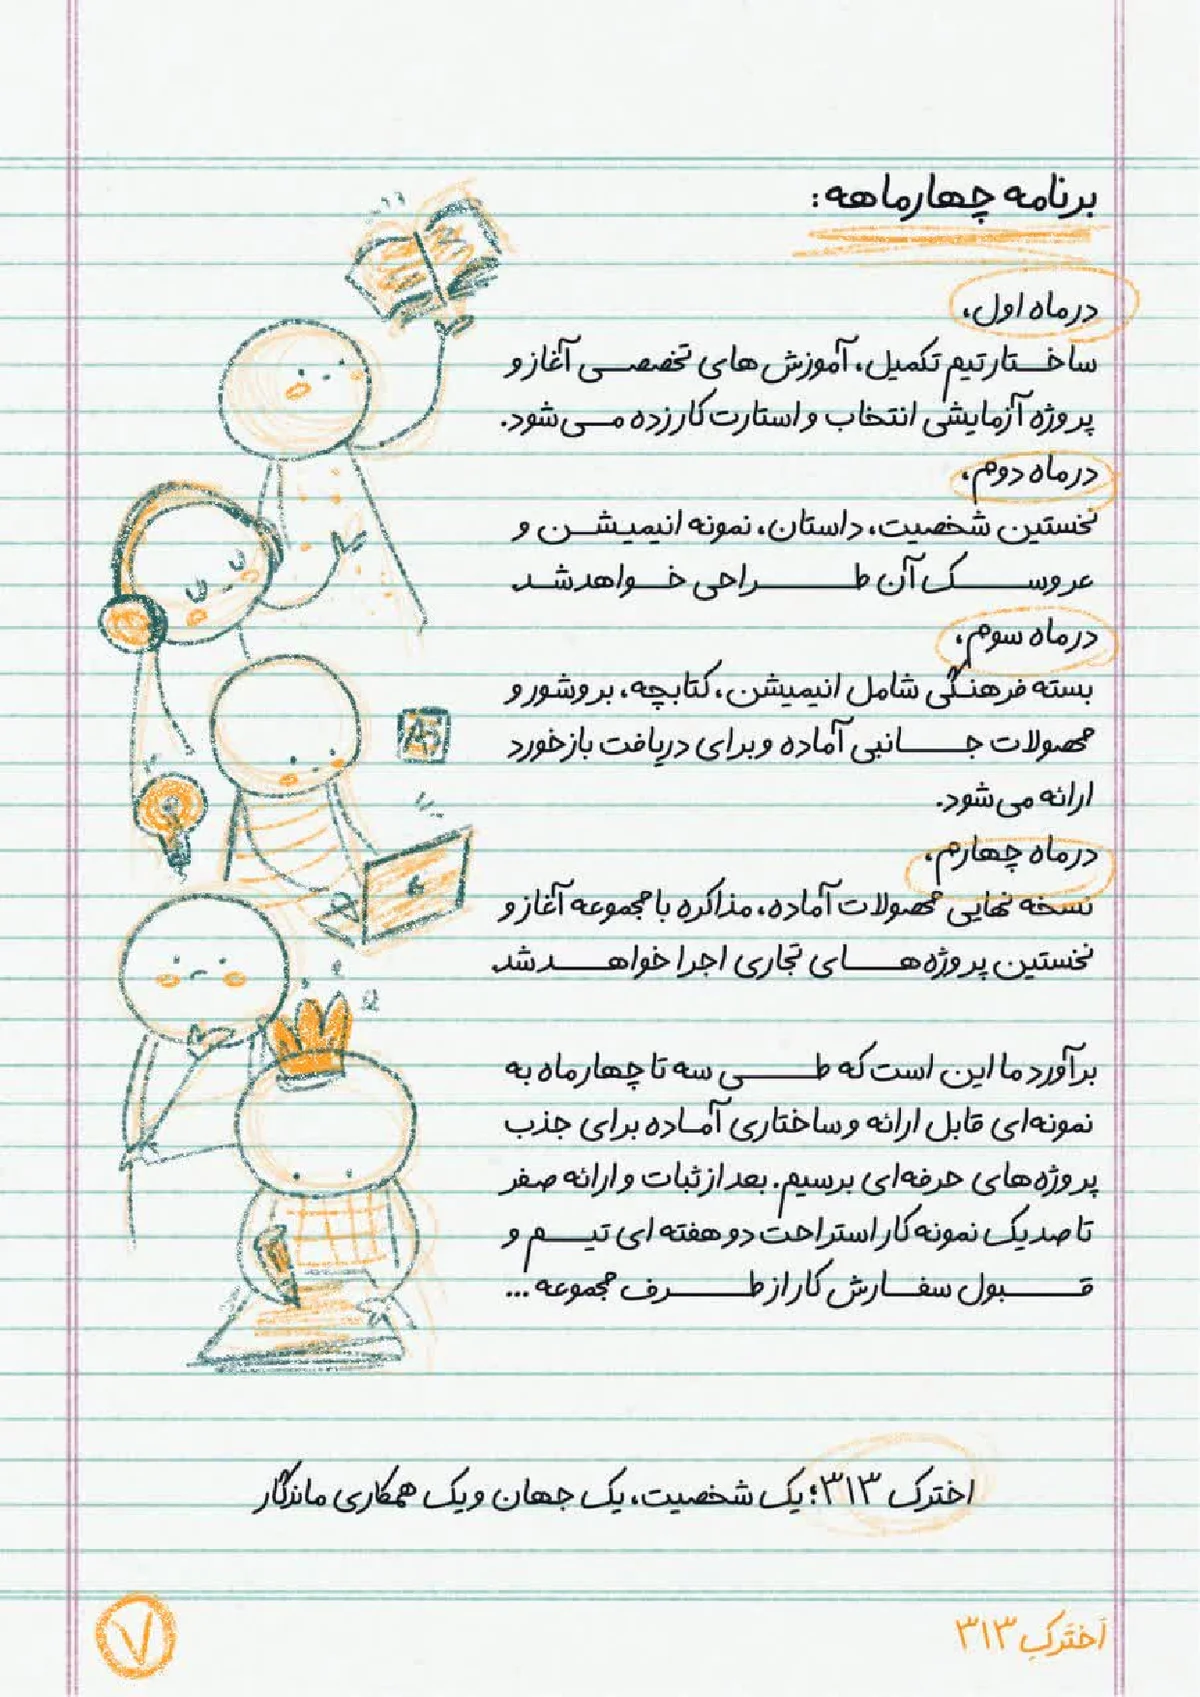 برنامه چهارماهه:
در ماه اول،
ساختار تیم تکمیل، آموزش های تخصصی آغاز و
پروژه آزمایشی انتخاب و استارت کار زده می‌شود.
در ماه دوم،
نخستین شخصیت، داستان، نمونه انیمیشن و
عروسک آن طراحی خواهد شد.
در ماه سوم،
بسته فرهنگی شامل انیمیشن، کتابچه، بروشور و
محصولات جانبی آماده و برای دریافت بازخورد
ارائه می‌شود.
در ماه چهارم،
نسخه نهایی محصولات آماده، مذاکره با مجموعه آغاز و
نخستین پروژه‌های تجاری اجرا خواهد شد.
برآورد ما این است که طی سه تا چهار ماه به
نمونه‌ای قابل ارائه و ساختاری آماده برای جذب
پروژه‌های حرفه‌ای برسیم. بعد از ثبات و ارائه صفر
تا صد یک نمونه کار استراحت دو هفته ای تیم و
قبول سفارش کار از طرف مجموعه ...
اخترک ۳۱۳؛ یک شخصیت، یک جهان و یک همکاری ماندگار
اَختَرَک ۳۱۳
۷